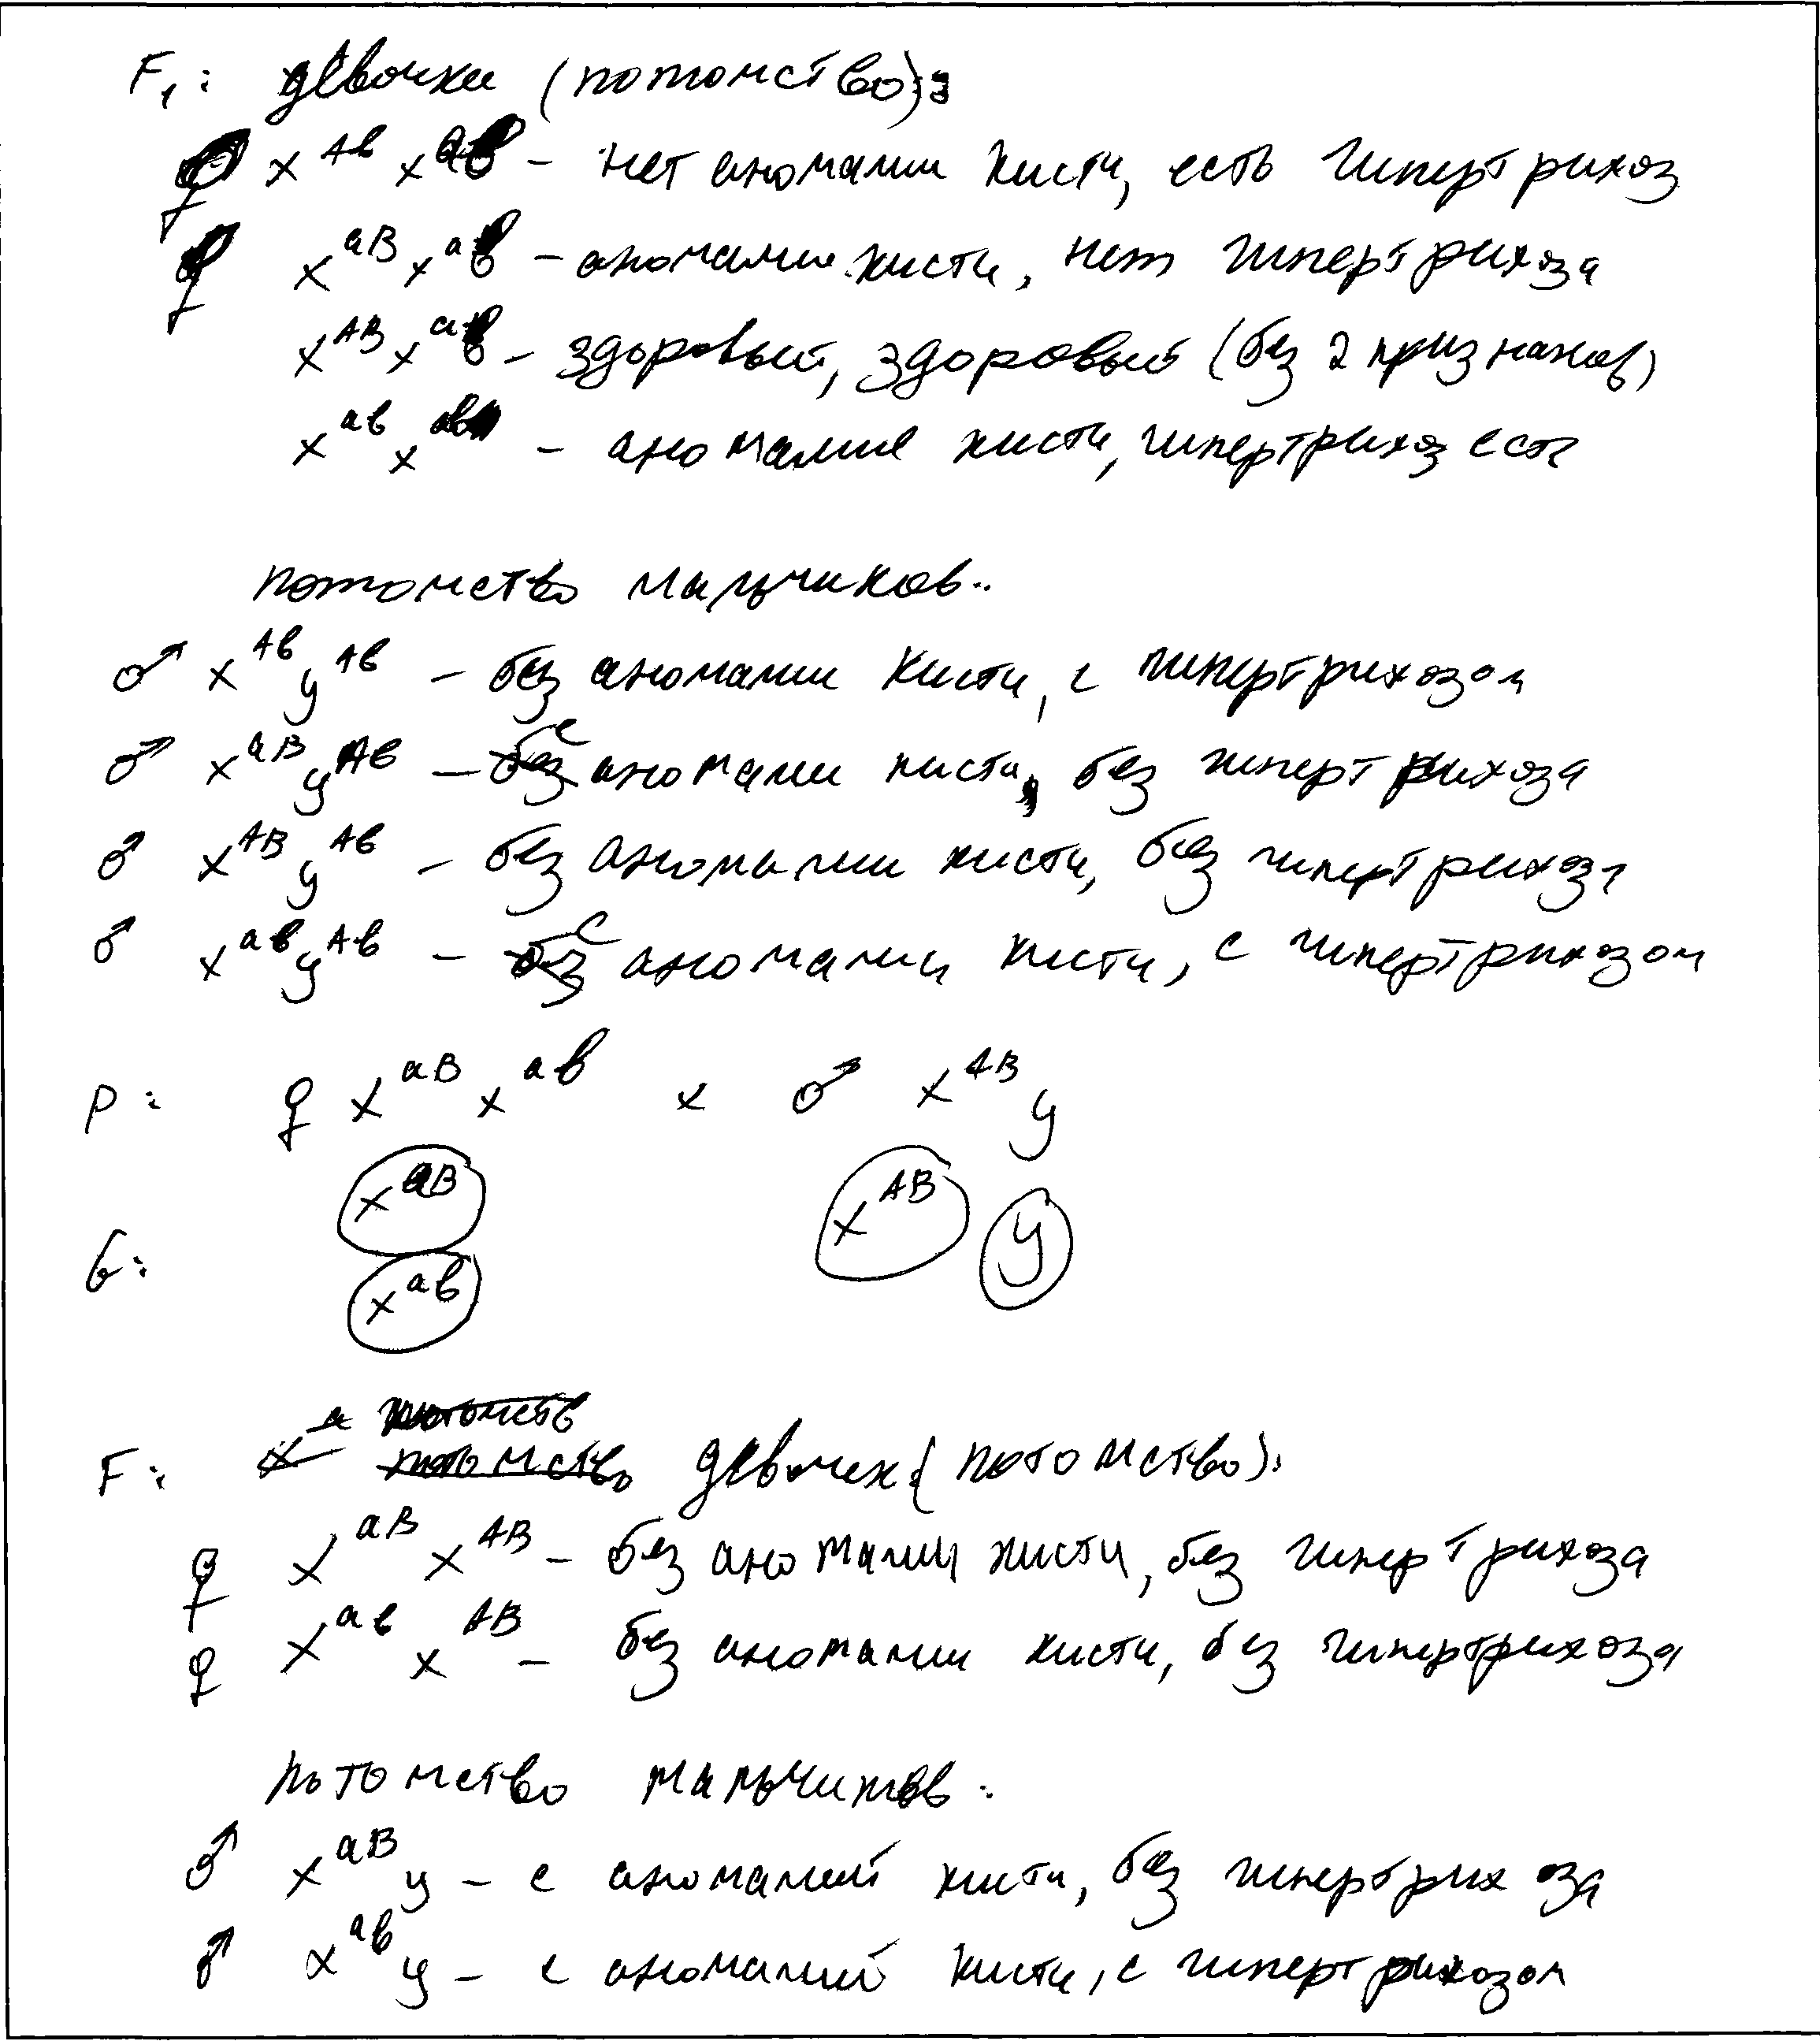 F₁: девочки (потомство):
♀ x^Ав x^ав – нет аномалии кисти, есть гипертрихоз
♀ x^аВ x^ав – аномалия кисти, нет гипертрихоза
x^АВ x^ав – здоровый, здоровый (без 2 признаков)
x^ав x^ав – аномалия кисти, гипертрихоз есть
потомство мальчиков:
♂ x^Ав y^Ав – без аномалии кисти, с гипертрихозом
♂ x^аВ y^Ав – с аномалии кисти, без гипертрихоза
♂ x^АВ y^Ав – без аномалии кисти, без гипертрихоза
♂ x^ав y^Ав – с аномалии кисти, с гипертрихозом
P: ♀ x^аВ x^ав x ♂ x^АВ y
x^аВ x^АВ y
G:
x^ав
потомств
F: потомство девочек (потомство):
♀ x^аВ x^АВ – без аномалии кисти, без гипертрихоза
♀ x^ав x^АВ – без аномалии кисти, без гипертрихоза
потомство мальчиков:
♂ x^аВ y – с аномалией кисти, без гипертрихоза
♂ x^ав y – с аномалией кисти, с гипертрихозом